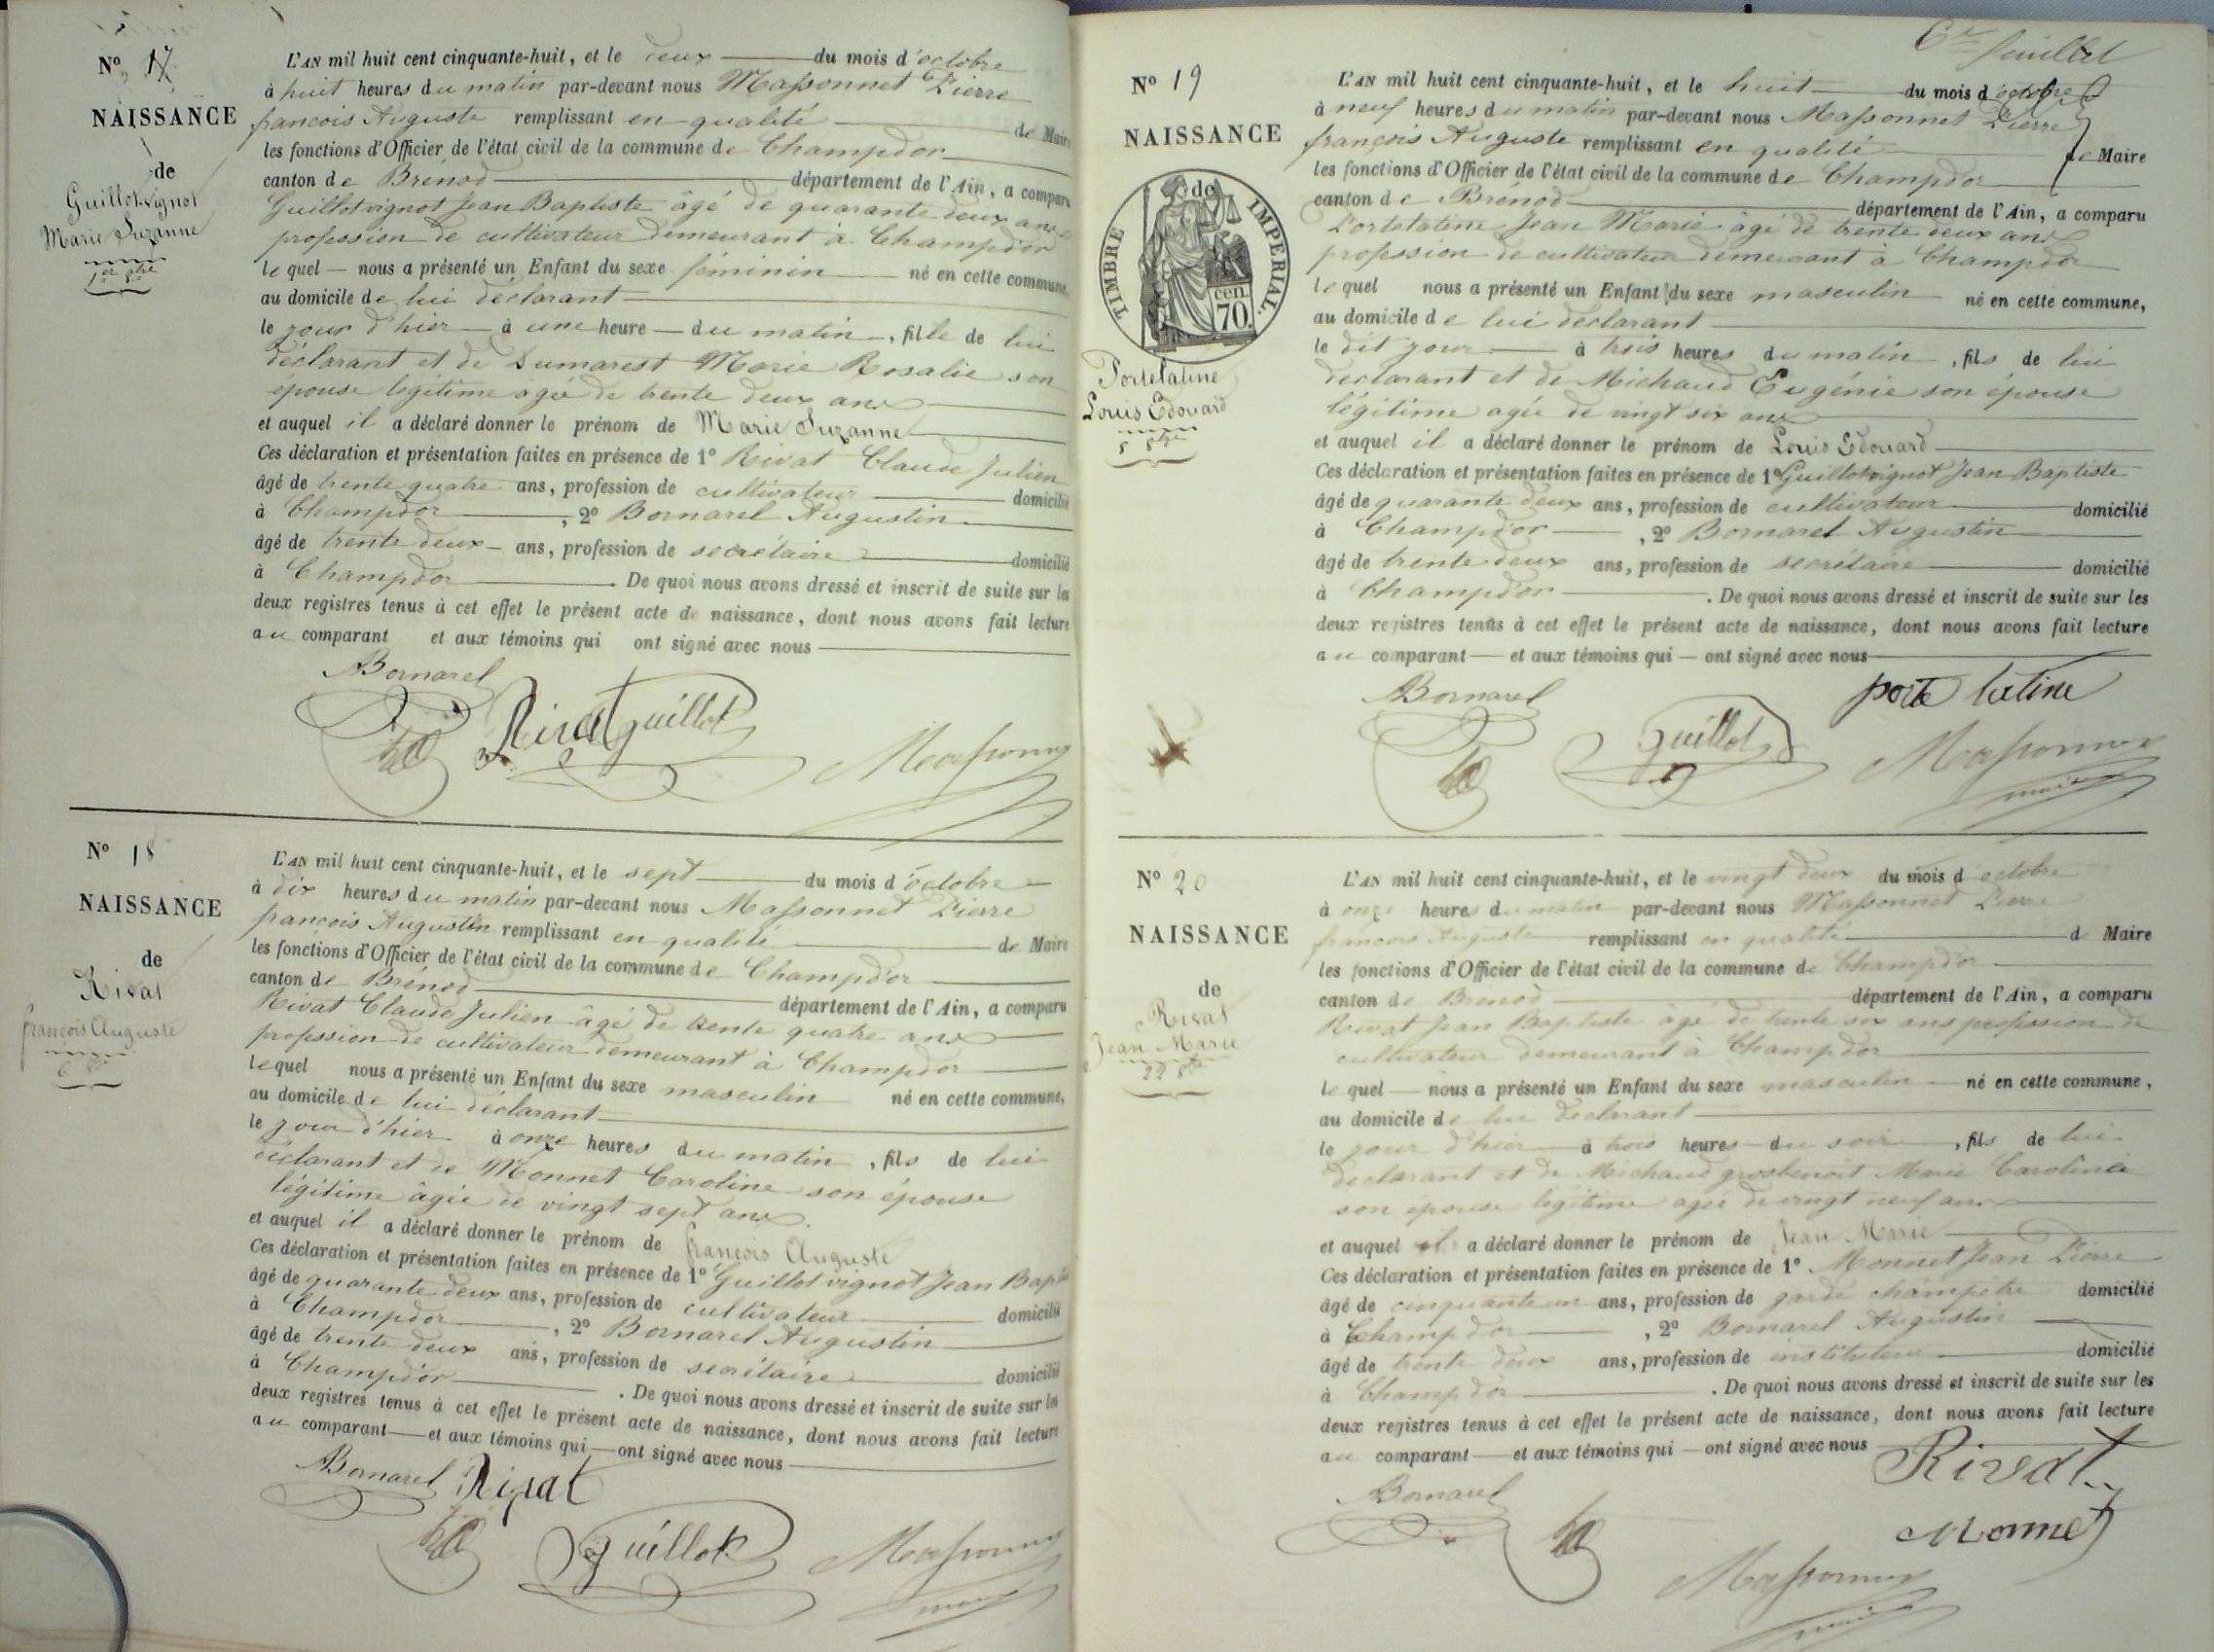 Nº 17
NAISSANCE
de
Guillot-vignot
Marie Suzanne
1er 8bre
L'AN mil huit cent cinquante-huit, et le deux du mois d'octobre
à huit heures du matin par-devant nous Massonnet Pierre
francois Auguste remplissant en qualité de Maire
les fonctions d'Officier de l'état civil de la commune de Champdor
canton de Brénod département de l'Ain, a comparu
Guillot vignot Jean Baptiste âgé de quarante deux ans
profession de cultivateur demeurant à Champdor
lequel nous a présenté un Enfant du sexe féminin né en cette commune,
au domicile de lui déclarant
le jour d'hier à une heure du matin, fille de lui
déclarant et de Dumarest Marie Rosalie son
épouse légitime agée de trente deux ans
et auquel il a déclaré donner le prénom de Marie Suzanne
Ces déclaration et présentation faites en présence de 1º Rivat Claude Julien
âgé de trente quatre ans, profession de cultivateur domicilié
à Champdor, 2º Bornarel Augustin
âgé de trente deux ans, profession de secrétaire domicilié
à Champdor. De quoi nous avons dressé et inscrit de suite sur les
deux registres tenus à cet effet le présent acte de naissance, dont nous avons fait lecture
au comparant et aux témoins qui ont signé avec nous
Bornarel
Rivat guillot
Massonnet
Nº 18
NAISSANCE
de
Rivat
francois Auguste
6 8bre
L'AN mil huit cent cinquante-huit, et le sept du mois d'octobre
à dix heures du matin par-devant nous Massonnet Pierre
françois Augustin remplissant en qualité de Maire
les fonctions d'Officier de l'état civil de la commune de Champdor
canton de Brénod département de l'Ain, a comparu
Rivat Claude Julien âgé de trente quatre ans
profession de cultivateur demeurant à Champdor
lequel nous a présenté un Enfant du sexe masculin né en cette commune,
au domicile de lui déclarant
le jour d'hier à onze heures du matin, fils de lui
déclarant et de Monnet Caroline son épouse
légitime âgée de vingt sept ans.
et auquel il a déclaré donner le prénom de françois Auguste
Ces déclaration et présentation faites en présence de 1º Guillot vignot Jean Bapte
âgé de quarante deux ans, profession de cultivateur domicilié
à Champdor, 2º Bornarel Augustin
âgé de trente deux ans, profession de secrétaire domicilié
à Champdor. De quoi nous avons dressé et inscrit de suite sur les
deux registres tenus à cet effet le présent acte de naissance, dont nous avons fait lecture
au comparant et aux témoins qui ont signé avec nous
Bornarel Rivat
guillot
Massonnet
maire
feuillet
Nº 19
NAISSANCE
de
TIMBRE IMPERIAL.
70 cen.
Portelatine
Louis Edouard
8 8bre
L'AN mil huit cent cinquante-huit, et le huit du mois d'octobre
à neuf heures du matin par-devant nous Massonnet Pierre
françois Auguste remplissant en qualité de Maire
les fonctions d'Officier de l'état civil de la commune de Champdor
canton de Brénod département de l'Ain, a comparu
Portelatine Jean Marie âgé de trente deux ans
profession de cultivateur demeurant à Champdor
lequel nous a présenté un Enfant du sexe masculin né en cette commune,
au domicile de lui déclarant
le dit jour à trois heures du matin, fils de lui
déclarant et de Michaud Eugénie son épouse
légitime agée de vingt six ans
et auquel il a déclaré donner le prénom de Louis Edouard
Ces déclaration et présentation faites en présence de 1º Guillot vignot Jean Baptiste
âgé de quarante deux ans, profession de cultivateur domicilié
à Champdor, 2º Bornarel Augustin
âgé de trente deux ans, profession de secrétaire domicilié
à Champdor. De quoi nous avons dressé et inscrit de suite sur les
deux registres tenus à cet effet le présent acte de naissance, dont nous avons fait lecture
au comparant et aux témoins qui ont signé avec nous
porte latine
Bornarel
guillot
Massonnet
maire
Nº 20
NAISSANCE
de
Rivat
Jean Marie
22 8bre
L'AN mil huit cent cinquante-huit, et le vingt deux du mois d'octobre
à onze heures du matin par-devant nous Massonnet Pierre
francois Auguste remplissant en qualité d Maire
les fonctions d'Officier de l'état civil de la commune de Champdor
canton de Brénod département de l'Ain, a comparu
Rivat Jean Baptiste âgé de trente six ans profession de
cultivateur demeurant à Champdor
lequel nous a présenté un Enfant du sexe masculin né en cette commune,
au domicile de lui déclarant
le jour d'hier à trois heures du soir, fils de lui
déclarant et de Michaud grosbenoit Marie Carolina
son épouse légitime agée de vingt neuf ans
et auquel il a déclaré donner le prénom de Jean Marie
Ces déclaration et présentation faites en présence de 1º Monnet Jean Pierre
âgé de cinquante un ans, profession de garde champêtre domicilié
à Champdor, 2º Bornarel Augustin
âgé de trente deux ans, profession de instituteur domicilié
à Champdor. De quoi nous avons dressé et inscrit de suite sur les
deux registres tenus à cet effet le présent acte de naissance, dont nous avons fait lecture
au comparant et aux témoins qui ont signé avec nous
Rivat
Bornarel
Monnet
Massonnet
maire